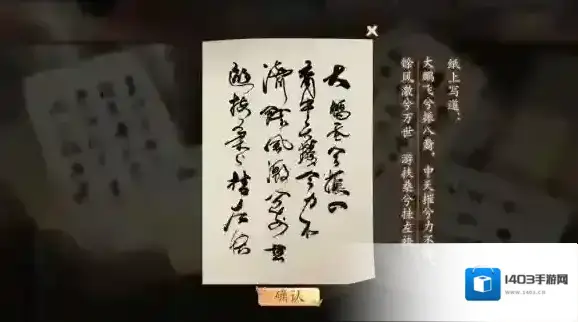 大鹏飞兮振八
裔中天摧兮力不
济馀风激兮万世
游扶桑兮挂左袂
纸上写道：
大鹏飞兮振八裔，中天摧兮力不
馀风激兮万世 游扶桑兮挂左
确认
1403手游网